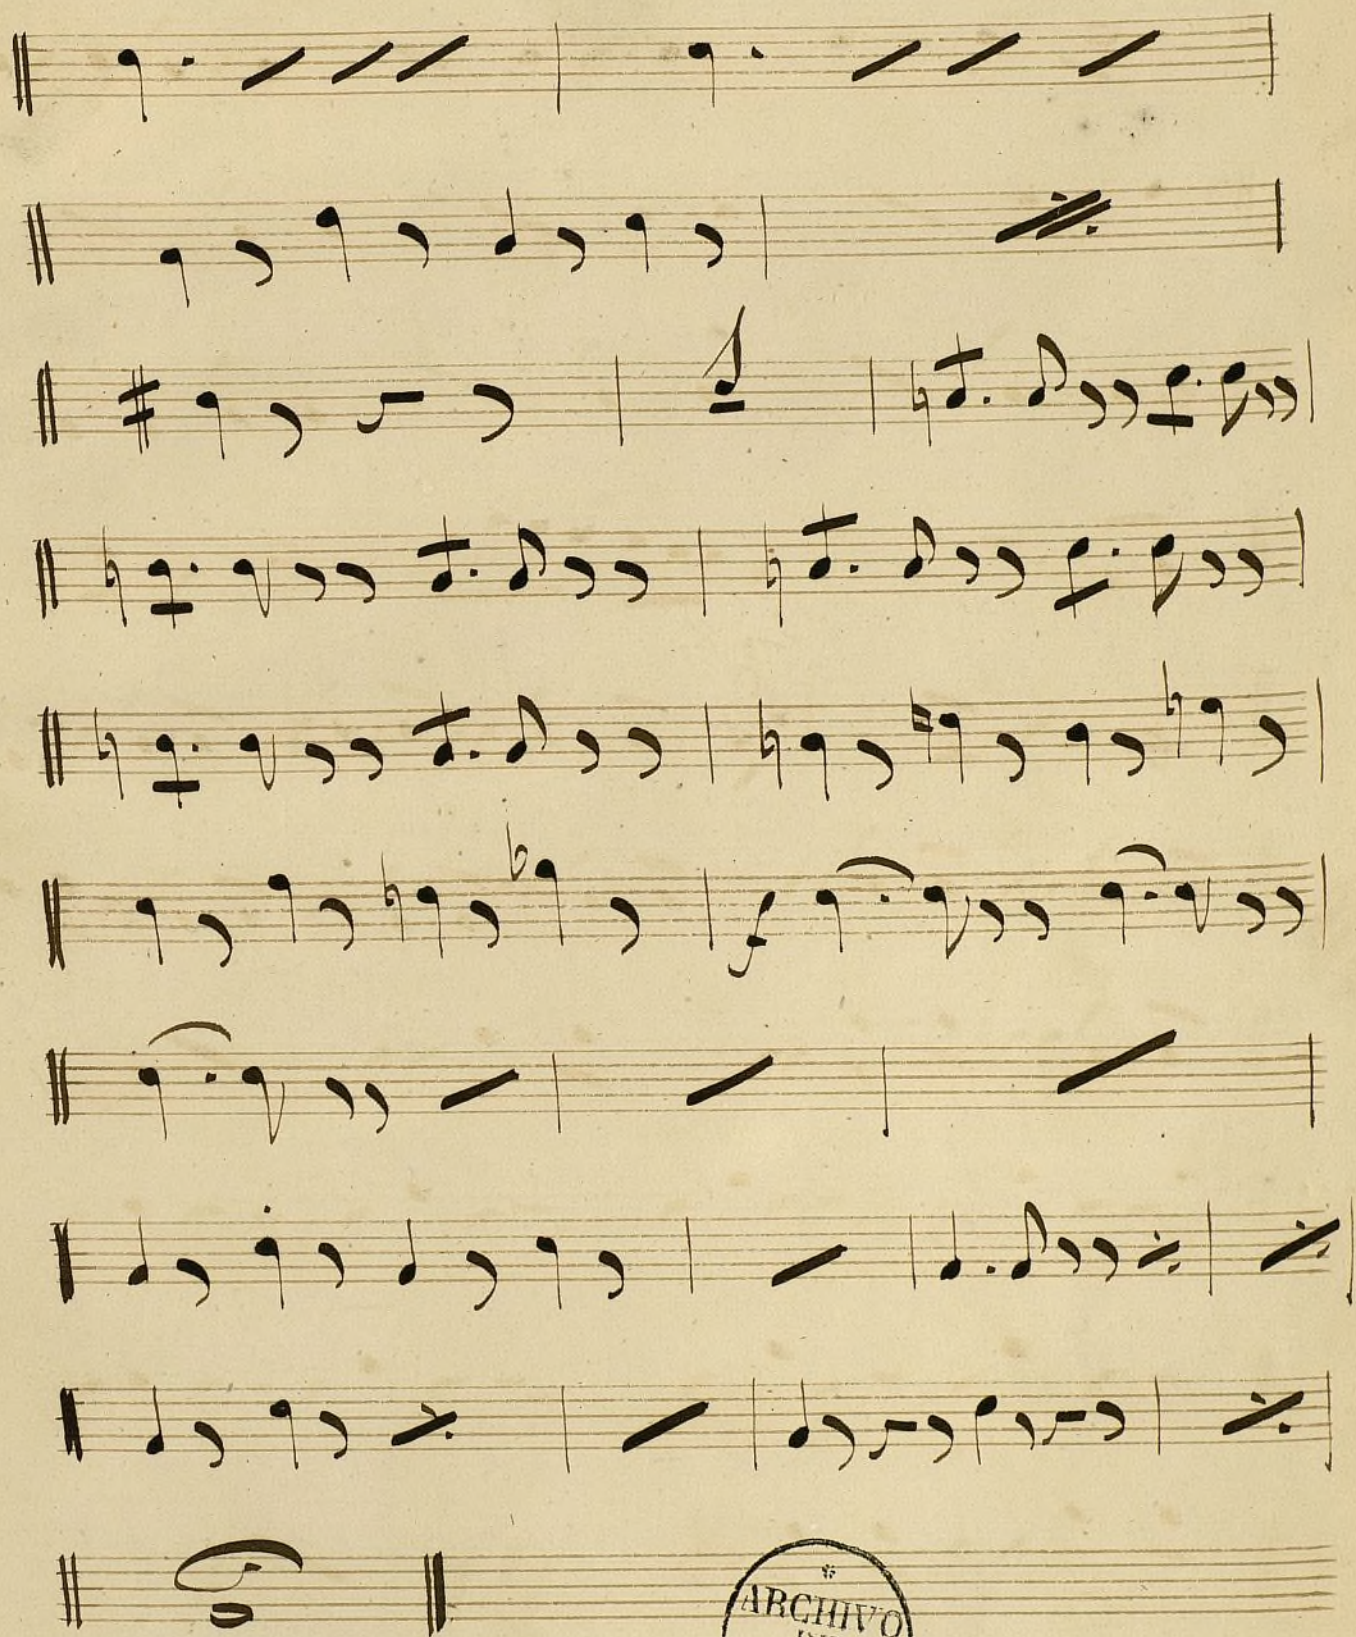 f
ARCHIVO